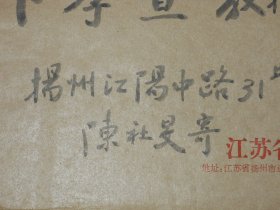 揚州江陽中路31号
陳社旻寄
江苏省
地址:江苏省扬州市